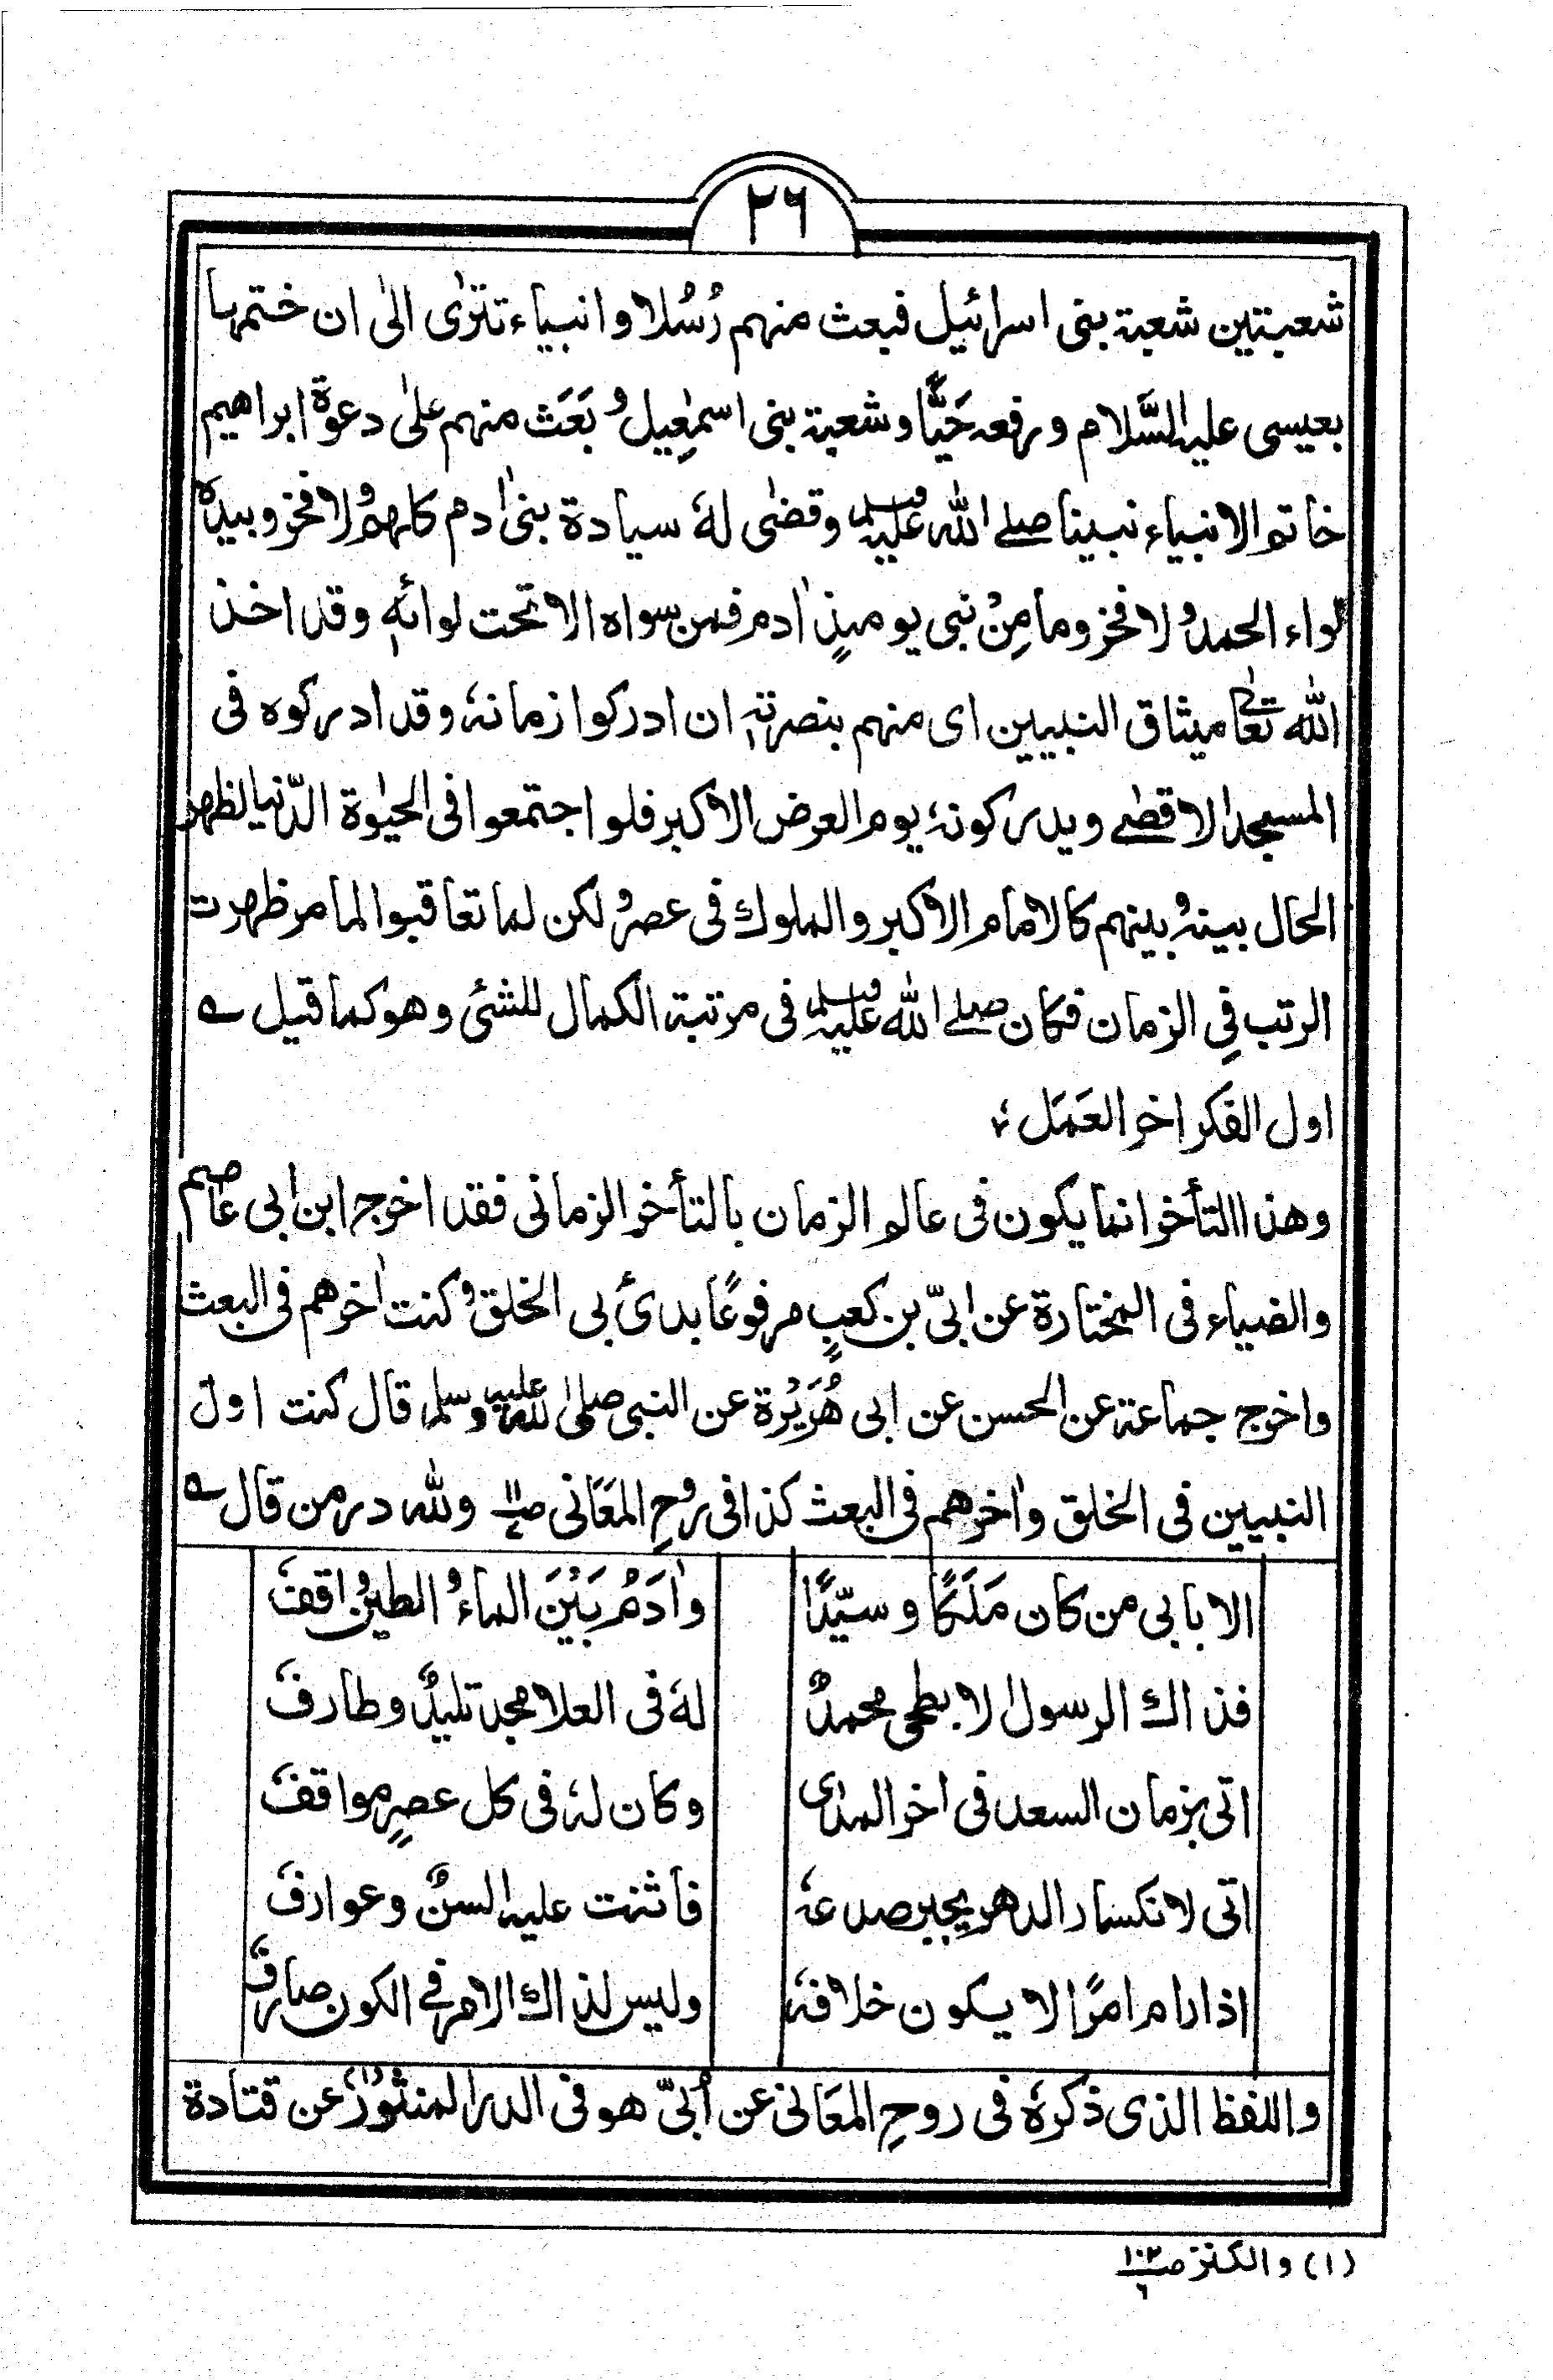 ٢٦
شعبتين شعبة بنى اسرائيل فبعث منهم رُسُلا و انبياء تترٰى الىٰ ان ختمها
بعيسى عليه السَّلام و رفعه حَيًّا و شعبة بنى اسمٰعِيل و بَعَث منهم علىٰ دعوة ابراهيم
خاتم الانبياء نبينا صلے الله عليه وسلم وقضٰى لهٗ سيادة بنىٰ ادم كلهم ولا فخر وبيده
لواء الحمد ولا فخر وما مِنْ نبى يومىذٍ اٰدم فمن سواه الا تحت لوائهٖ وقد اخذ
الله تعالٰے ميثاق النبيين اى منهم بنصرتهٖ ان ادركوا زمانهٗ وقد ادركوه فى
المسجد الاقصٰے ويدركونهٗ يوم العرض الاكبر فلو اجتمعوا فى الحيٰوة الدّنيا لظهر
الحال بينه و بينهم كالامام الاكبر و الملوك فى عصره ولكن لما تعاقبوا لما مر ظهرت
الرتب فِى الزمان فكان صلے الله عليه وسلم فى مرتبة الكمال للشئ وهو كما قيل ؎
اول الفكر اخر العَمَل ؛
وهذا التأخر انما يكون فى عالم الزمان بالتأخر الزمانى فقد اخرج ابن ابى عاصم
والضياء فى المختارة عن ابىّ بن كعبٍ مرفوعًا بدئ بى الخلق و كنت اٰخرهم فى البعث
واخرج جماعة عن الحسن عن ابى هُرَيْرة عن النبى صلى الله عليه وسلم قال كنت اول
النبيين فى الخلق واٰخرهم فى البعث كذا فى روح المعَانى ولله در من قال ؎
الا بابى من كان مَلَكًا و سيّدًا واٰدَمُ بَيْنَ الماء و الطين واقف
فذاك الرسول الابطحى محمدٌ لهٗ فى العلا مجد تليدٌ وطارف
اتى بزمان السعد فى اٰخر المدى وكان لهٗ فى كل عصرٍ مواقف
اتى لانكسار الدهر يجبر صدعهٗ فأثنت عليه السنٌ وعوارف
اذا رام امرًا لا يكون خلافهٗ وليس لذاك الامر فى الكون صارف
واللفظ الذى ذكرهٗ فى روحِ المعَانى عن اُبىّ هو فى الدر المنثور عن قتادة
(١) والكنز ص ١٠٢/٦